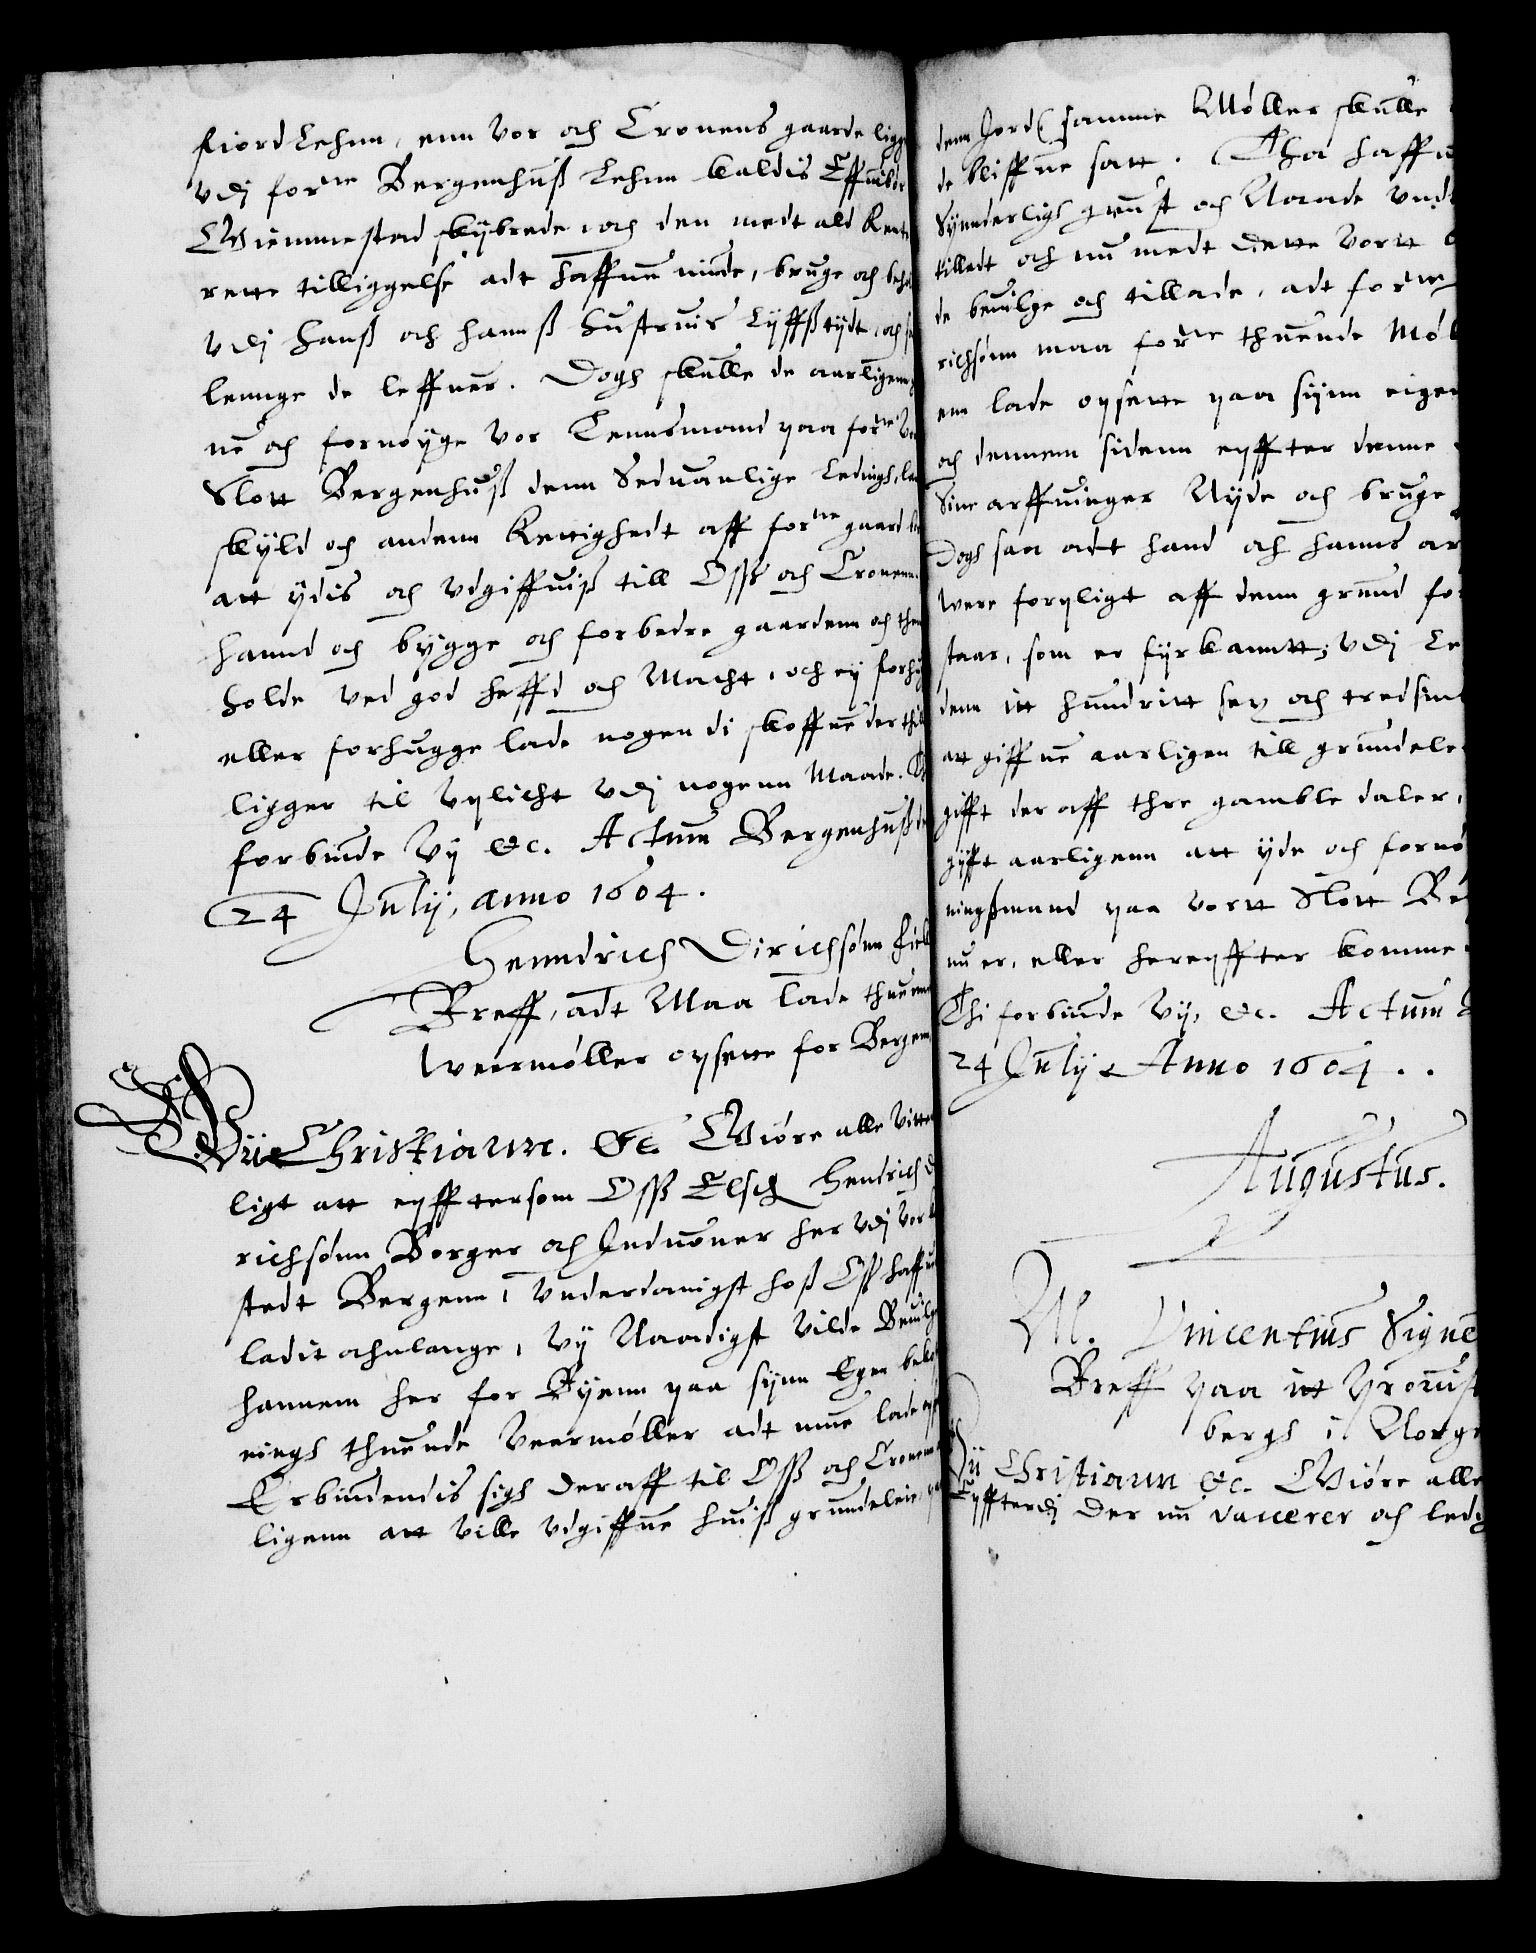 fiord Lehnn, enn vor och Cronens gaarde ligg
vdj for:ne Bergenhuß Lehnn kaldis
Wiemmestad skibrede, och den medt ald Rente
rette tilliggelse adt haffue niude, bruge och beh
vdj hanß och hannß hustruis Lyffßtydt, och s
lennge de leffuer. Dogh skulle de aarligenn
ne och fornøyge vor Lennsmand paa for:ne
Slott Bergenhuß denn Seduanlige Ledings,
skyld och andenn Rettighedt aff for:ne gaard
att ydis och vdgiffuiß till Oss och Cronenn.
hannd och bygge och forbedre gaardenn och
holde ved god heffd och Macht, och ey forh
eller forhugge lade nogen di skoffue der
ligger til vplicht vdj nogenn Maade.
forbiude Vy &c. Actum Bergenhuß
24 Julij, anno 1604.
Henndrich Dirichsønn
Breff, adt Maa lade thuenn
veermøller opsette for Bergenn
Vii Christiann. &c. Giøre alle vitter
ligt att epfftersom Oss Elsch Hendrich D
richsønn Borger och Induoner her vdj vor
stedt Bergenn, vnderdanigst hoß Oss haffu
ladit ahnlange, Vy Naadigst vilde Beuilge
hannem her for Byenn paa synn Egen bek
nings thuende veermøller adt mue lade
Erbiudendis sigh deraff til Oss och Cronenn
ligenn att ville vdgiffue huiß grundeleie,
dem Jord samme Møller skulle
de bliffue satt. Tha haffu
Synnderligh gunst och Naade vndt
tilledt och nu medt dette vort
de beuilge och tillade, adt for:ne
richsønn maa for:ne thuende Møl
en lade opsette paa synn eigen
och dennem sidenn epffter denne
Sine arffuinger Nyde och bruge
Dogh saa adt hand och hanns ar
were forpligt aff denn grund for
staar, som er fyrkanntt, vdj Le
denn itt hundritt sex och tredsin
att giffue aarligen till grundele
gifft deraff thre gamble daler,
gifft aarligenn att yde och fornø
ningßmand paa vortt Slott Be
nu er, eller herepffter komme
Thi forbiude Vy, &c. Actum
24 Julij Anno 1604 . .
Augustus.
M. Vincentius Signe
Breff paa itt
bergh i Norge
Vii Christiann &c. Giøre alle
Epffterdj der nu vacerer och ledi